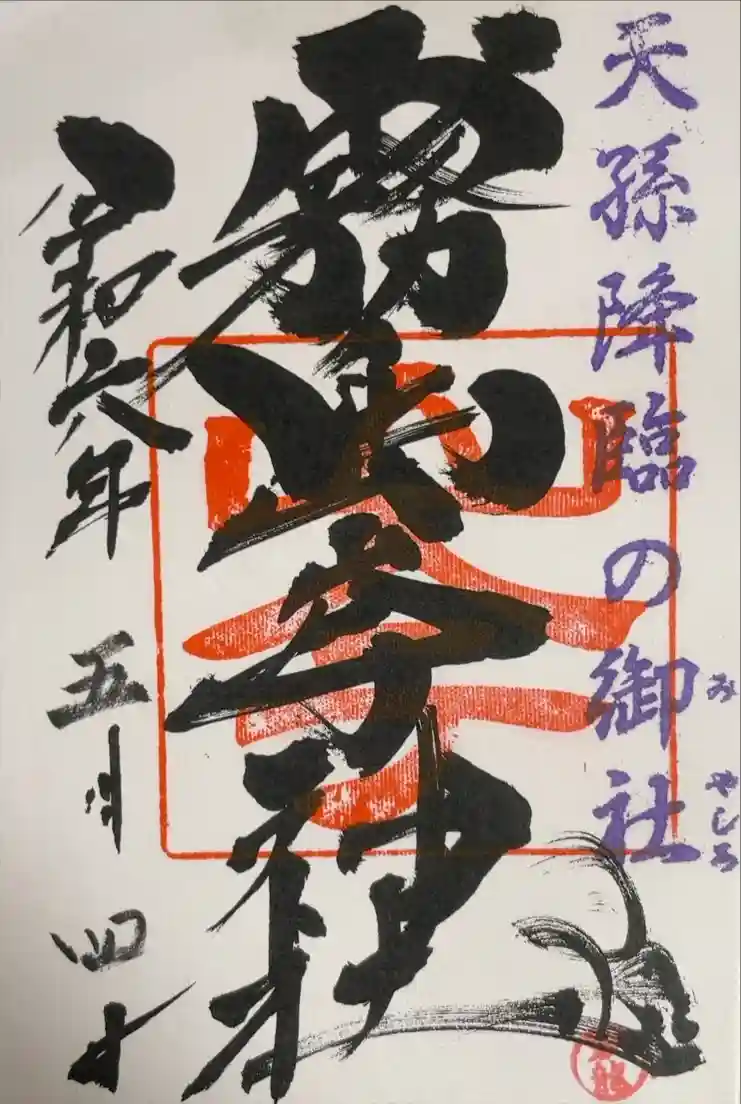 天孫降臨の御社
みやしろ
霧島岑神社
令和六年
五月